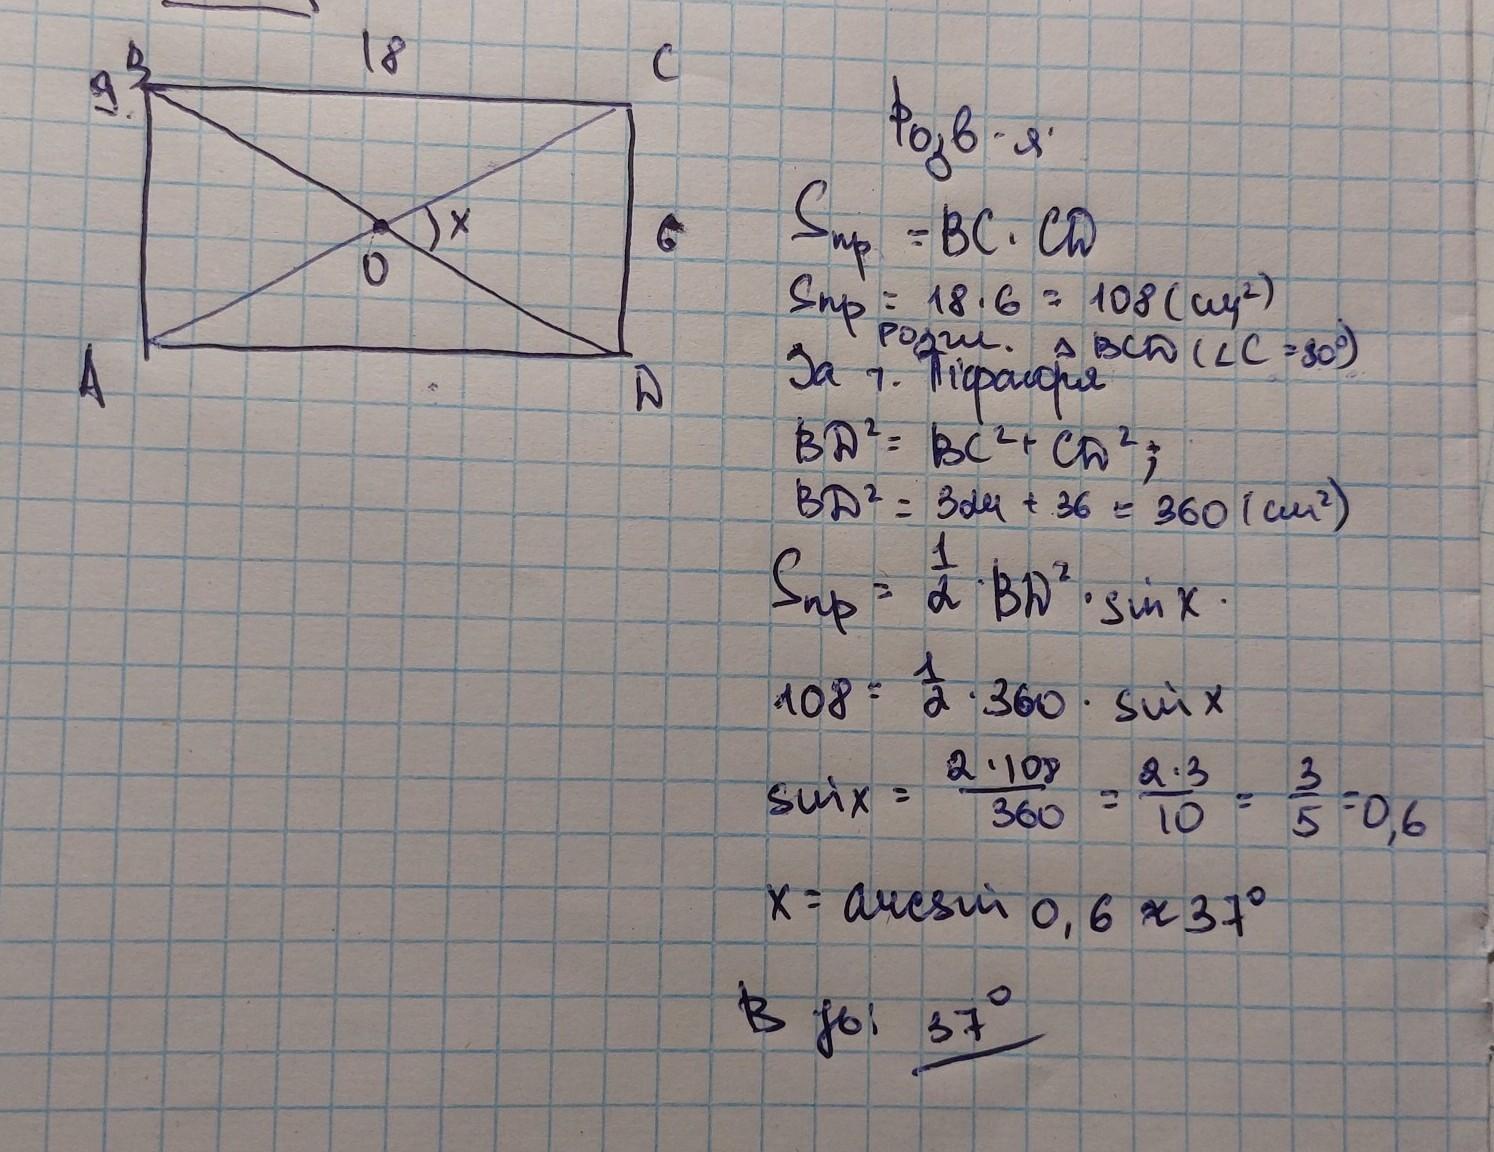 18
B
C
9.
x
6
O
A
D
Розв-я
Sпр = BC · CD
Sпр = 18 · 6 = 108 (см²)
Розгл. △ BCD (∠C = 90°)
За т. Піфагора
BD² = BC² + CD²;
BD² = 324 + 36 = 360 (см²)
Sпр = 1/2 · BD² · sin x.
108 = 1/2 · 360 · sin x
sin x = 2·108/360 = 2·3/10 = 3/5 = 0,6
x = arcsin 0,6 ≈ 37°
В дь: 37°